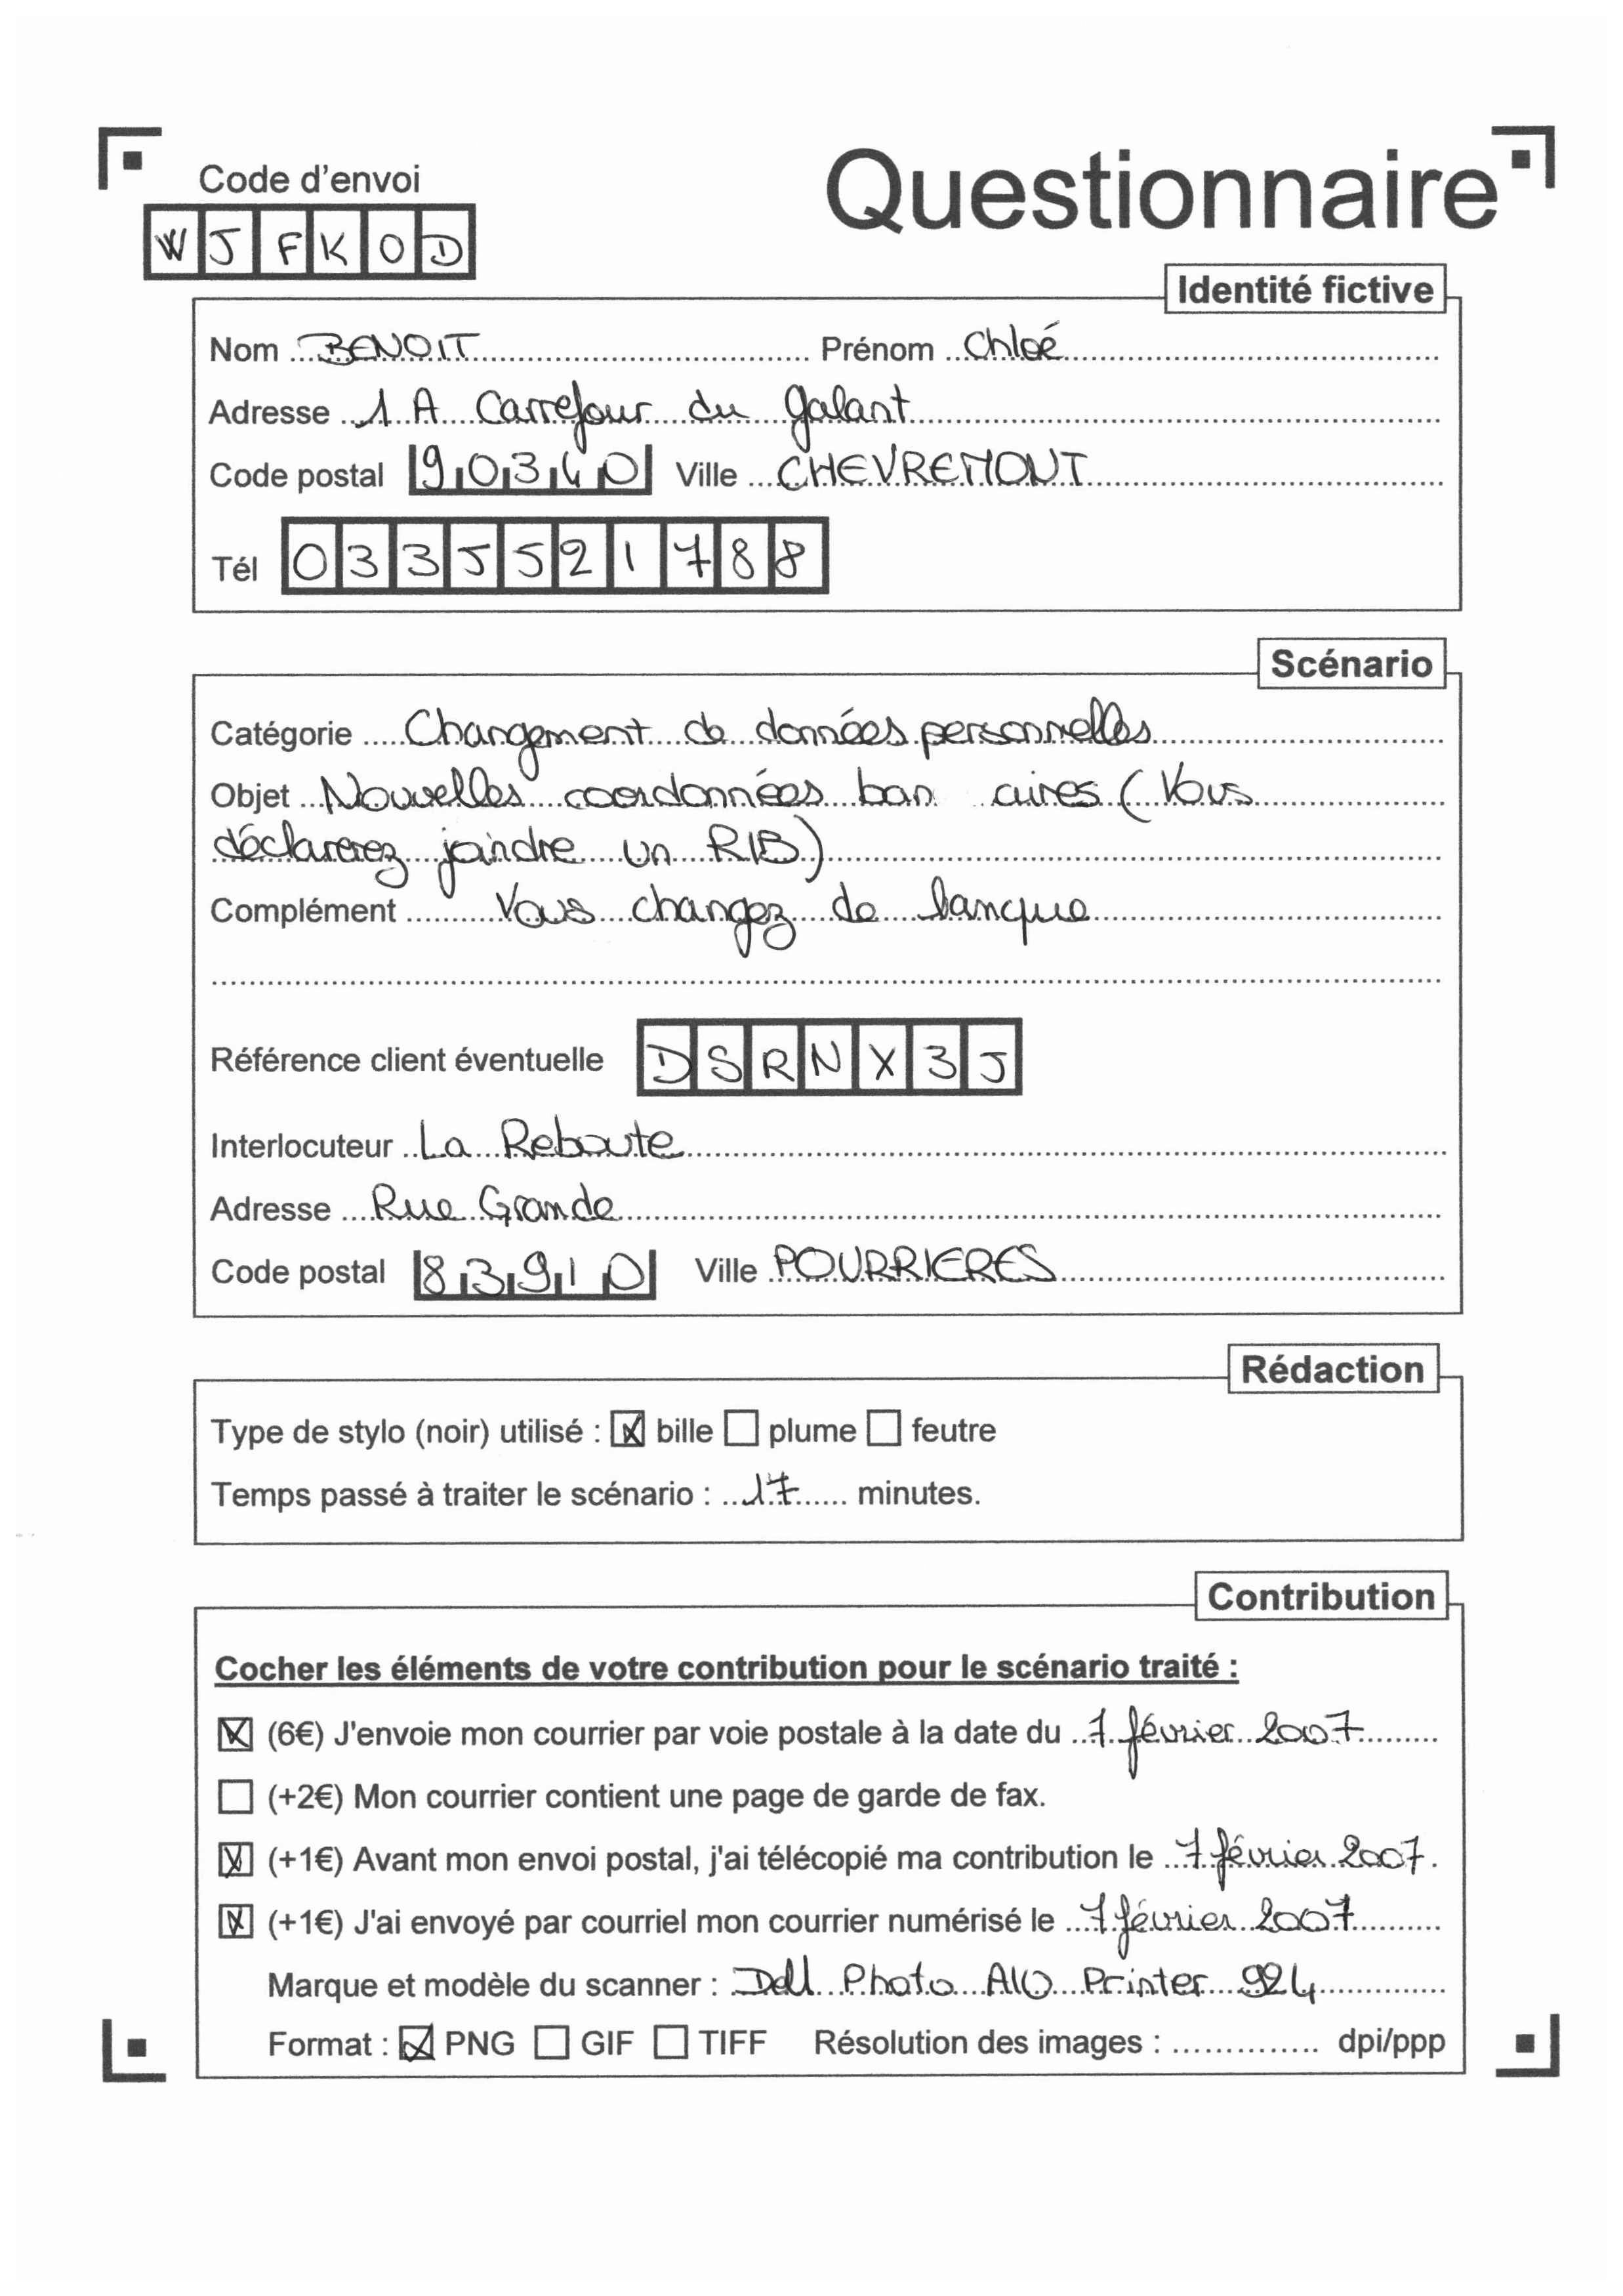 Code d'envoi
Questionnaire
WJFKOD
Identité fictive
Nom BENOIT Prénom Chloé
Adresse 1 A Carrefour du galant
Code postal 90340 Ville CHEVREMONT
Tél 0335521788
Scénario
Catégorie Changement de données personnelles
Objet Nouvelles coordonnées ban aires (Vous
déclarerez joindre un RIB)
Complément Vous changez de banque
Référence client éventuelle DSRNX3J
Interlocuteur La Reboute
Adresse Rue Grande
Code postal 83910 Ville POURRIERES
Rédaction
Type de stylo (noir) utilisé : bille plume feutre
Temps passé à traiter le scénario : 17 minutes.
Contribution
Cocher les éléments de votre contribution pour le scénario traité :
(6€) J'envoie mon courrier par voie postale à la date du 7 février 2007
(+2€) Mon courrier contient une page de garde de fax.
(+1€) Avant mon envoi postal, j'ai télécopié ma contribution le 7 février 2007.
(+1€) J'ai envoyé par courriel mon courrier numérisé le 7 février 2007
Marque et modèle du scanner : Dell Photo AIO Printer 924
Format : PNG GIF TIFF Résolution des images : .............. dpi/ppp